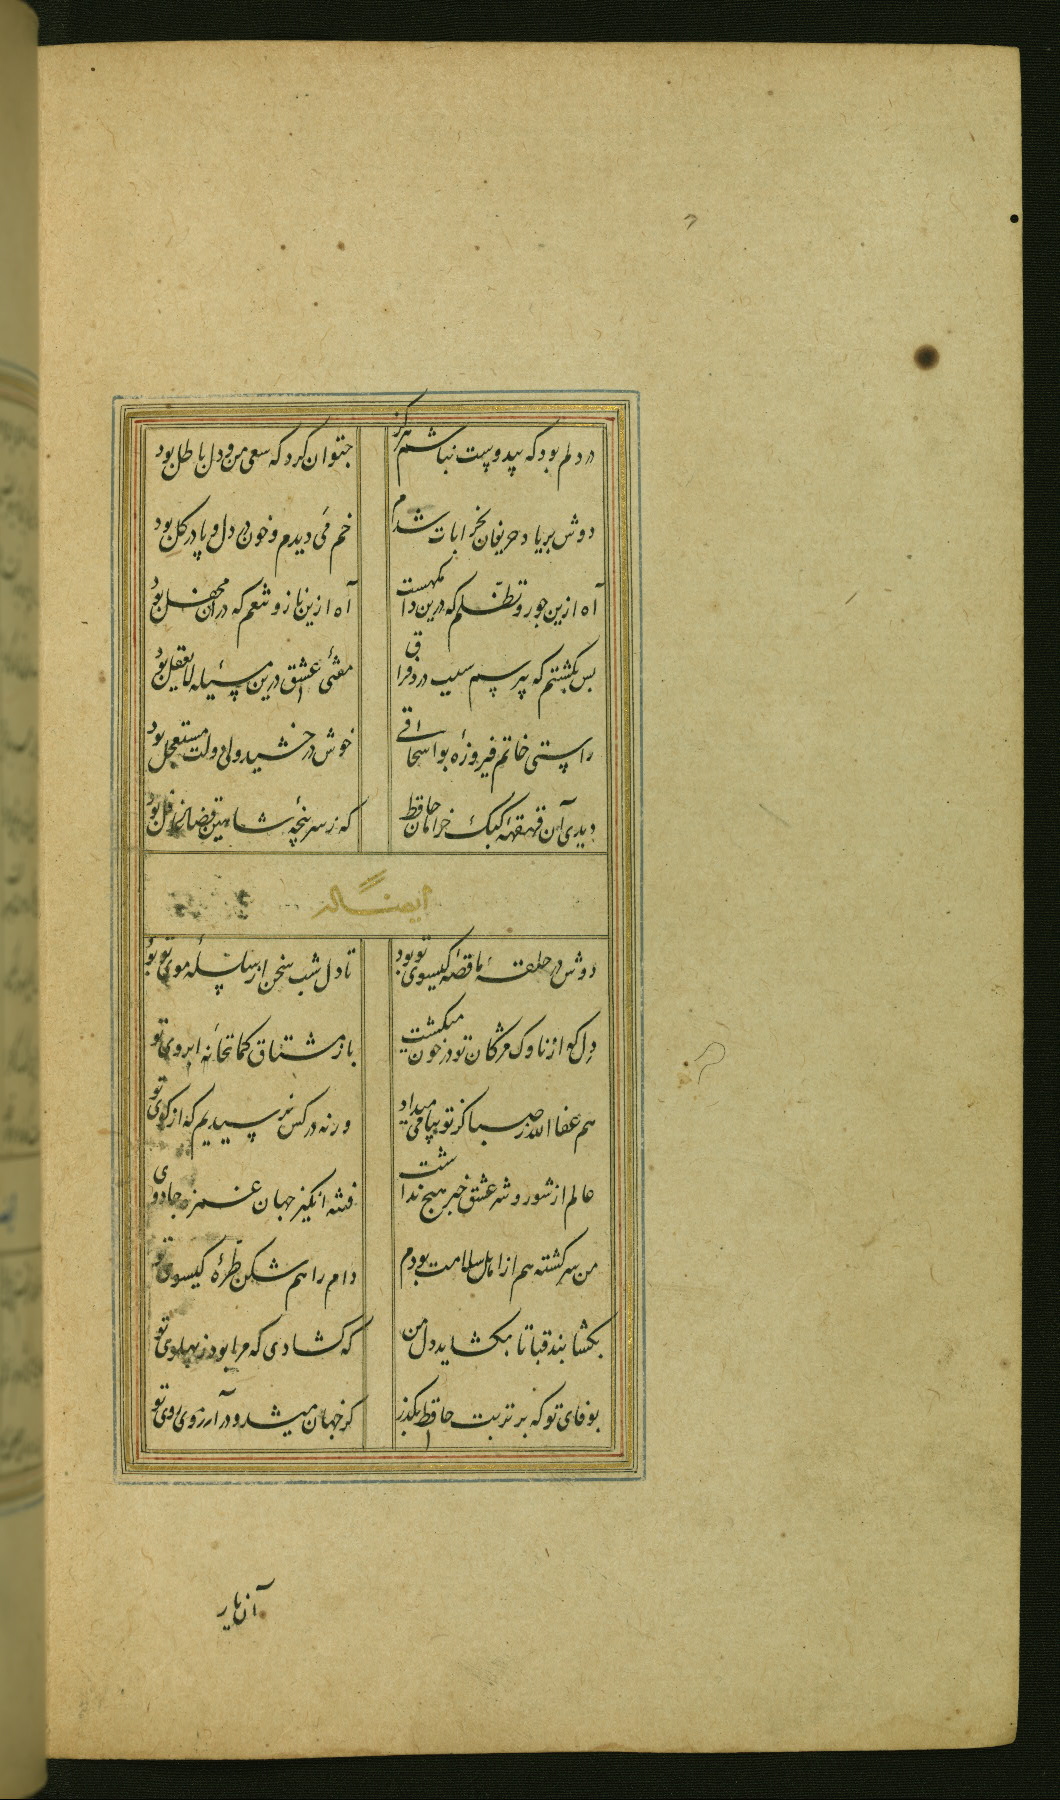 در دلم بود که بیدوست نباشم هرگز چتوان کرد که سعی من و دل باطل بود
دوش بر یاد حریفان بخرابات شدم خم می دیدم و خون در دل و پا در گل بود
آه ازین جور و تظلم که درین دامگهست آه ازین ناز و تنعم که در آن محفل بود
بس بگشتم که بپرسم سبب درد فراق مفتی عشق درین مسئله لایعقل بود
راستی خاتم فیروزهٔ بواسحاقی خوش درخشید ولی دولت مستعجل بود
دیدی آن قهقههٔ کبک خرامان حافظ که ز سرپنجهٔ شاهین قضا غافل بود
ایضا له
دوش در حلقهٔ ما قصهٔ گیسوی تو بود تا دل شب سخن از سلسلهٔ موی تو بود
دل که از ناوک مژگان تو در خون میگشت باز مشتاق کمانخانهٔ ابروی تو
هم عفا الله ز صبا کز تو پیامی میداد ورنه در کس نرسیدیم که از کوی تو
عالم از شور و شر عشق خبر هیچ نداشت فتنه انگیز جهان غمزه جادوی
من سرگشته هم از اهل سلامت بودم دام راهم شکن طرهٔ گیسوی تو
بگشا بند قبا تا بگشاید دل من که گشادی که مرا بود ز پهلوی تو
بوفای تو که بر تربت حافظ بگذر کز جهان میشد و در آرزوی روی تو
آن یار